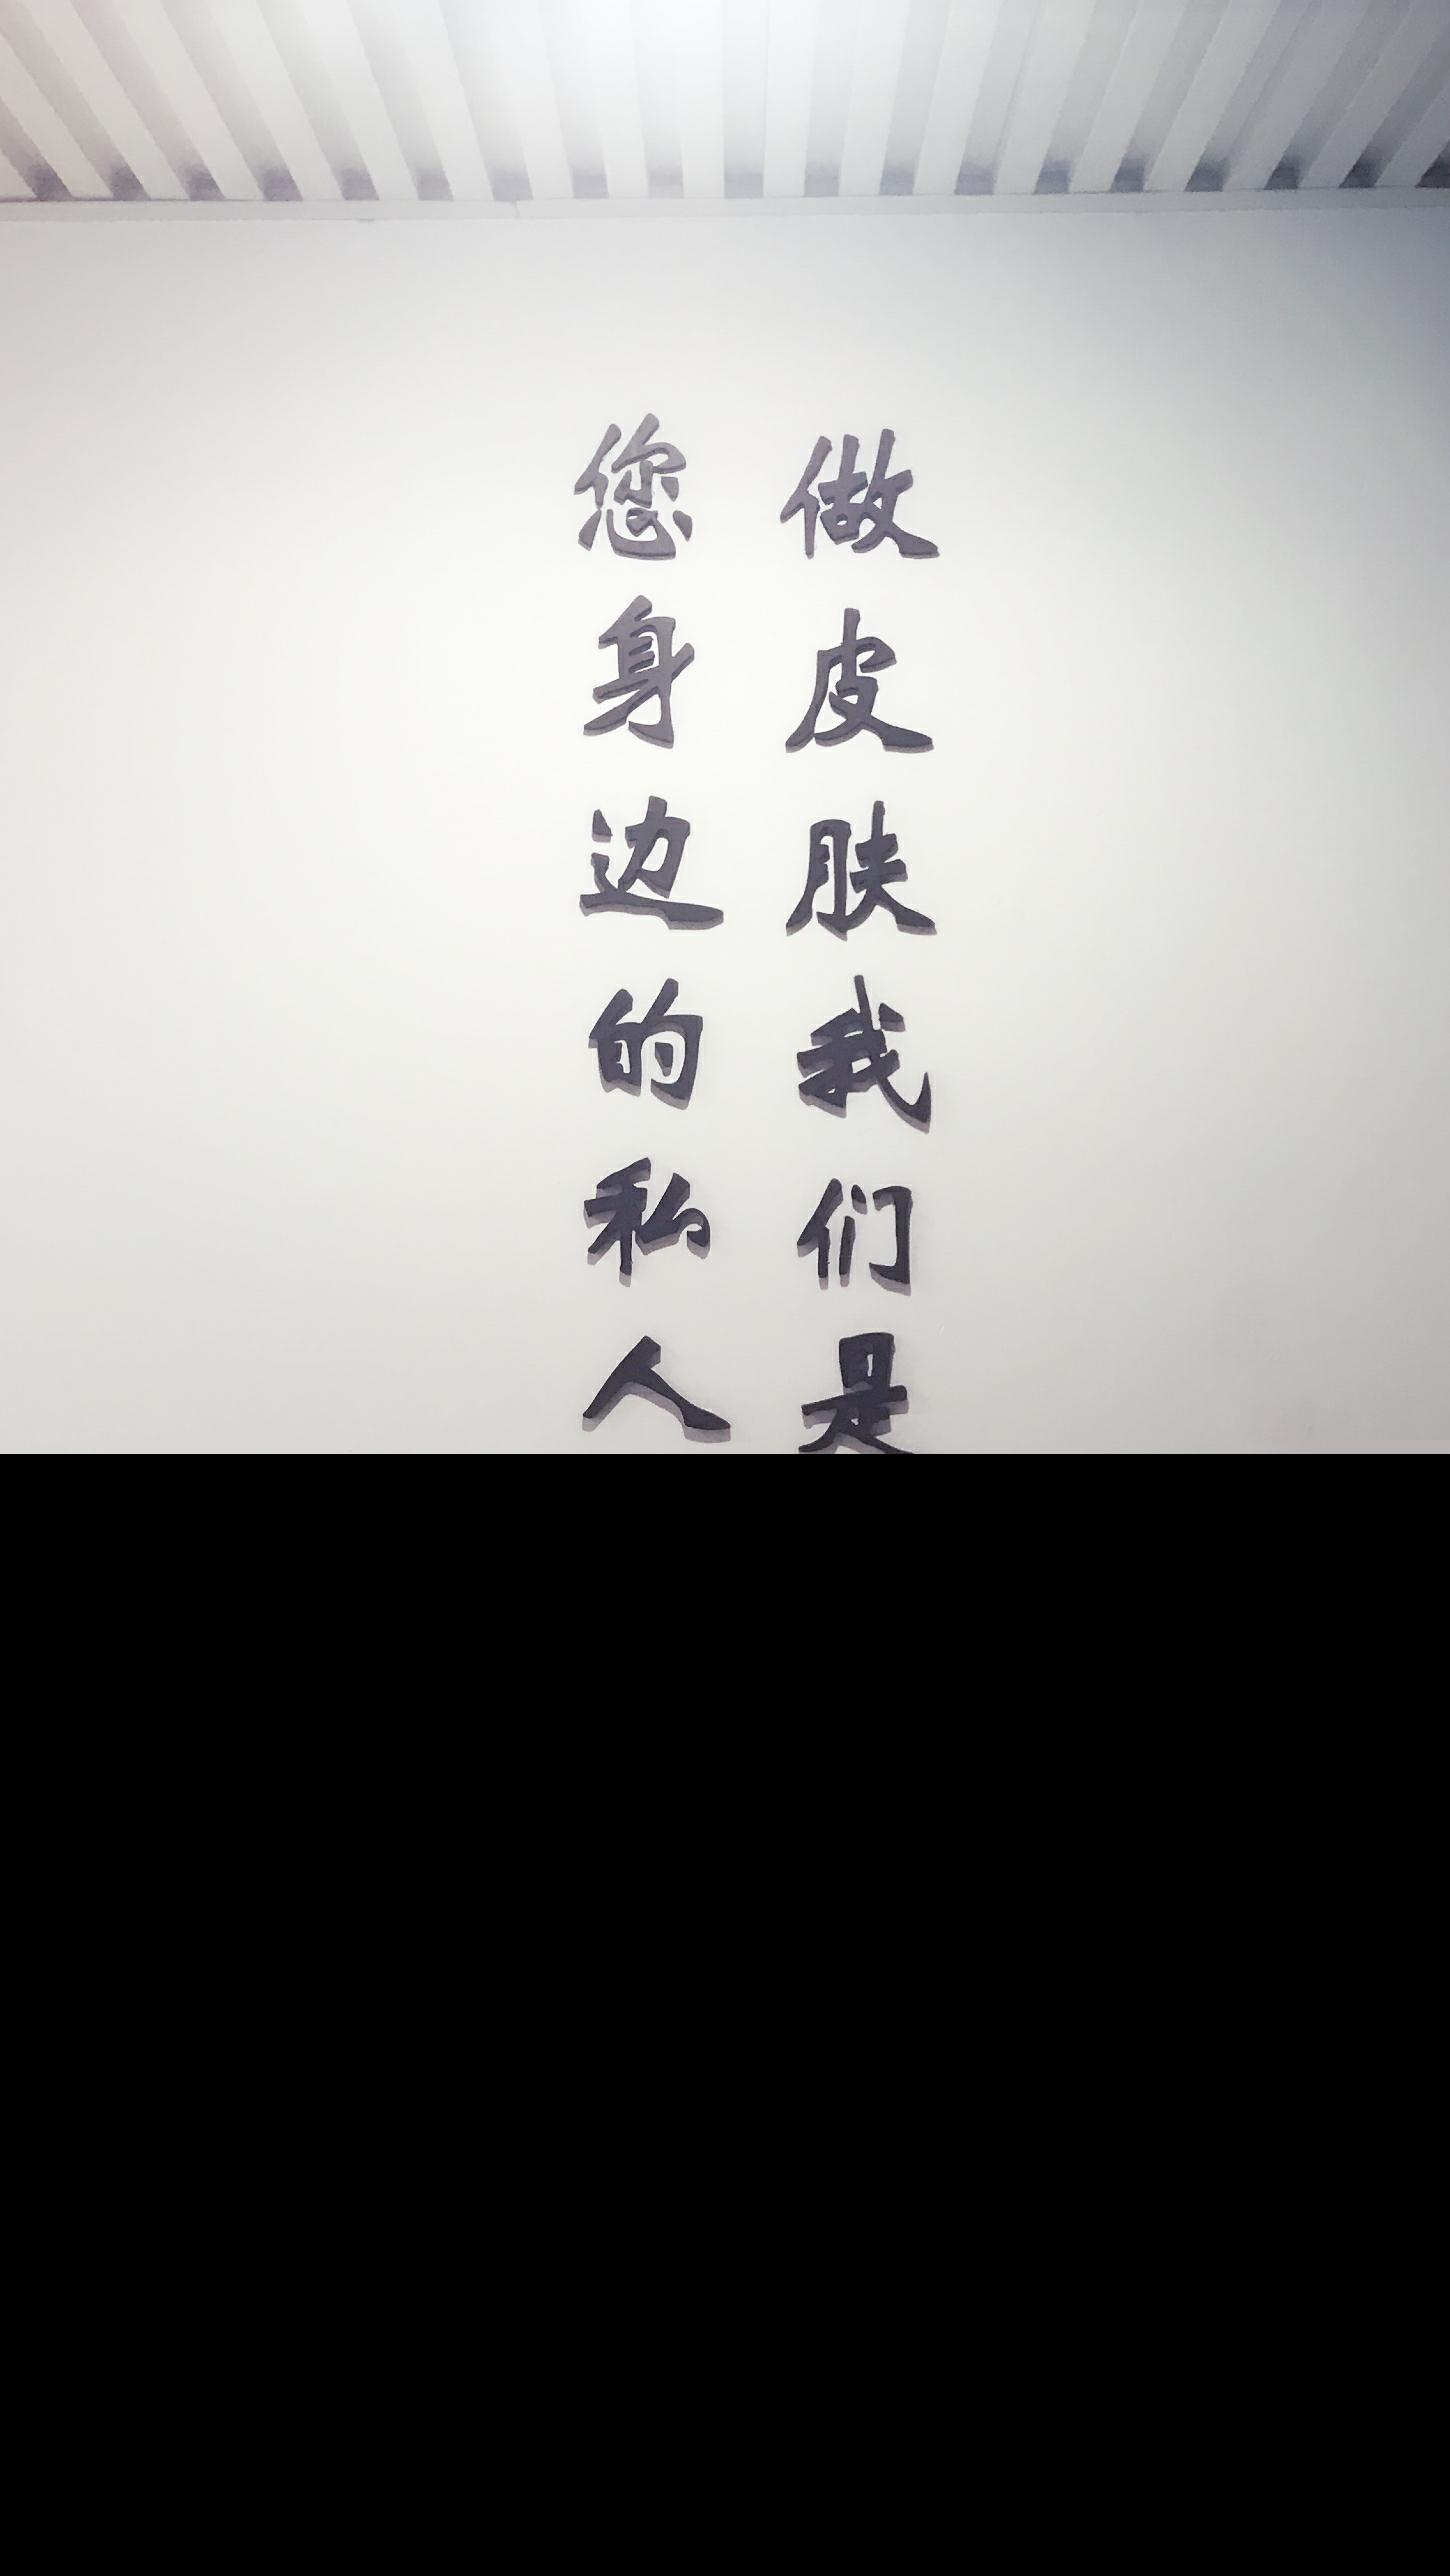 做皮肤我们是
您身边的私人